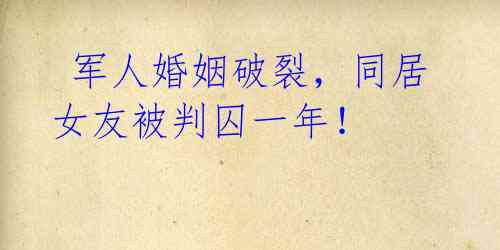 军人婚姻破裂，同居
女友被判囚一年！